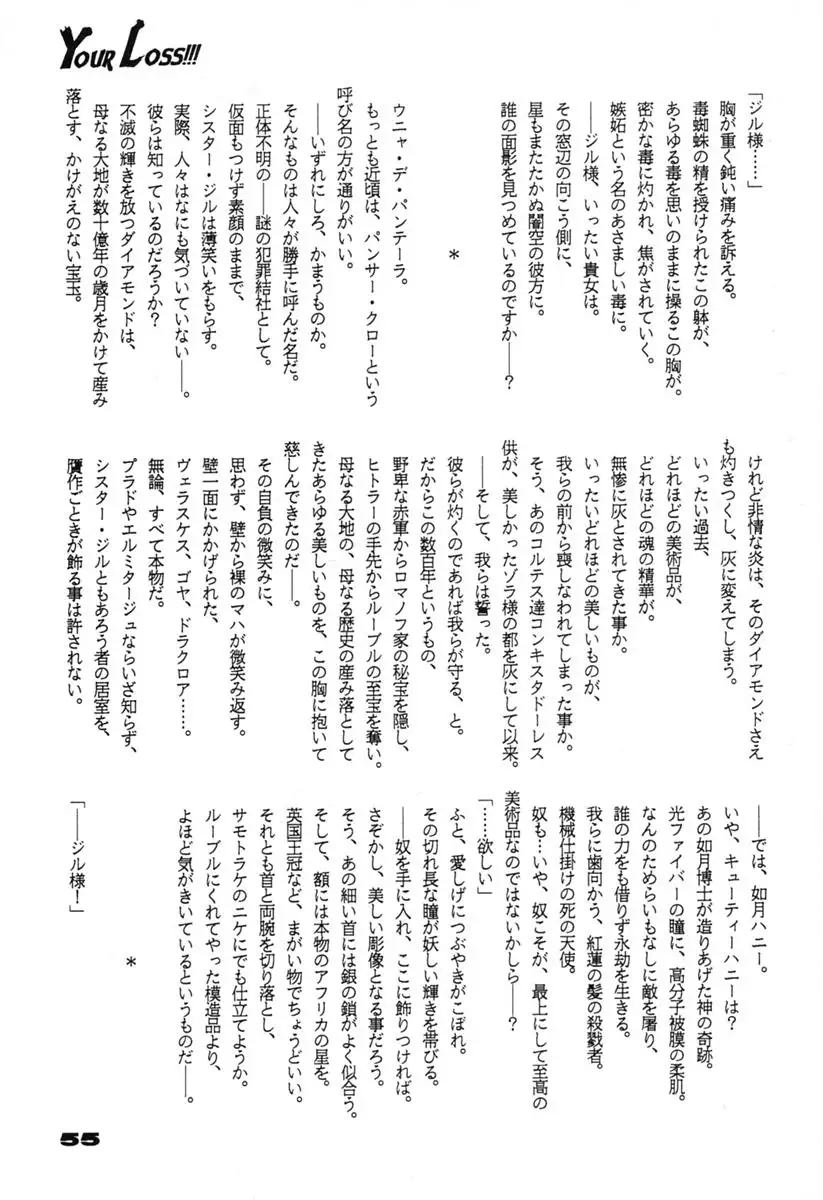 YOUR LOSS!!!
「ジル様……」
胸が重く鈍い痛みを訴える。
毒蜘蛛の精を授けられたこの躰が、
あらゆる毒を思いのままに操るこの胸が。
密かな毒に灼かれ、焦がされていく。
嫉妬という名のあさましい毒に。
――ジル様、いったい貴女は。
その窓辺の向こう側に、
星もまたたかぬ闇空の彼方に。
誰の面影を見つめているのですか――?
＊
ウニャ・デ・パンテーラ。
もっとも近頃は、パンサー・クローという
呼び名の方が通りがいい。
――いずれにしろ、かまうものか。
そんなものは人々が勝手に呼んだ名だ。
正体不明の――謎の犯罪結社として。
仮面もつけず素顔のままで、
シスター・ジルは薄笑いをもらす。
実際、人々はなにも気づいていない――。
彼らは知っているのだろうか?
不滅の輝きを放つダイアモンドは、
母なる大地が数十億年の歳月をかけて産み
落とす、かけがえのない宝玉。
けれど非情な炎は、そのダイアモンドさえ
も灼きつくし、灰に変えてしまう。
いったい過去、
どれほどの美術品が、
どれほどの魂の精華が。
無惨に灰とされてきた事か。
いったいどれほどの美しいものが、
我らの前から喪しなわれてしまった事か。
そう、あのコルテス達コンキスタドーレス
供が、美しかったゾラ様の都を灰にして以来。
――そして、我らは誓った。
彼らが灼くのであれば我らが守る、と。
だからこの数百年というもの、
野卑な赤軍からロマノフ家の秘宝を隠し、
ヒトラーの手先からルーブルの至宝を奪い。
母なる大地の、母なる歴史の産み落として
きたあらゆる美しいものを、この胸に抱いて
慈しんできたのだ――。
その自負の微笑みに、
思わず、壁から裸のマハが微笑み返す。
壁一面にかかげられた、
ヴェラスケス、ゴヤ、ドラクロア……。
無論、すべて本物だ。
プラドやエルミタージュならいざ知らず、
シスター・ジルともあろう者の居室を、
贋作ごときが飾る事は許されない。
――では、如月ハニー。
いや、キューティーハニーは?
あの如月博士が造りあげた神の奇跡。
光ファイバーの瞳に、高分子被膜の柔肌。
なんのためらいもなしに敵を屠り、
誰の力をも借りず永劫を生きる。
我らに歯向かう、紅蓮の髪の殺戮者。
機械仕掛けの死の天使。
奴も…いや、奴こそが、最上にして至高の
美術品なのではないかしら――?
「……欲しい」
ふと、愛しげにつぶやきがこぼれ。
その切れ長な瞳が妖しい輝きを帯びる。
――奴を手に入れ、ここに飾りつければ。
さぞかし、美しい彫像となる事だろう。
そう、あの細い首には銀の鎖がよく似合う。
そして、額には本物のアフリカの星を。
英国王冠など、まがい物でちょうどいい。
それとも首と両腕を切り落とし、
サモトラケのニケにでも仕立てようか。
ルーブルにくれてやった模造品より、
よほど気がきいているというものだ――。
＊
「――ジル様！」
55